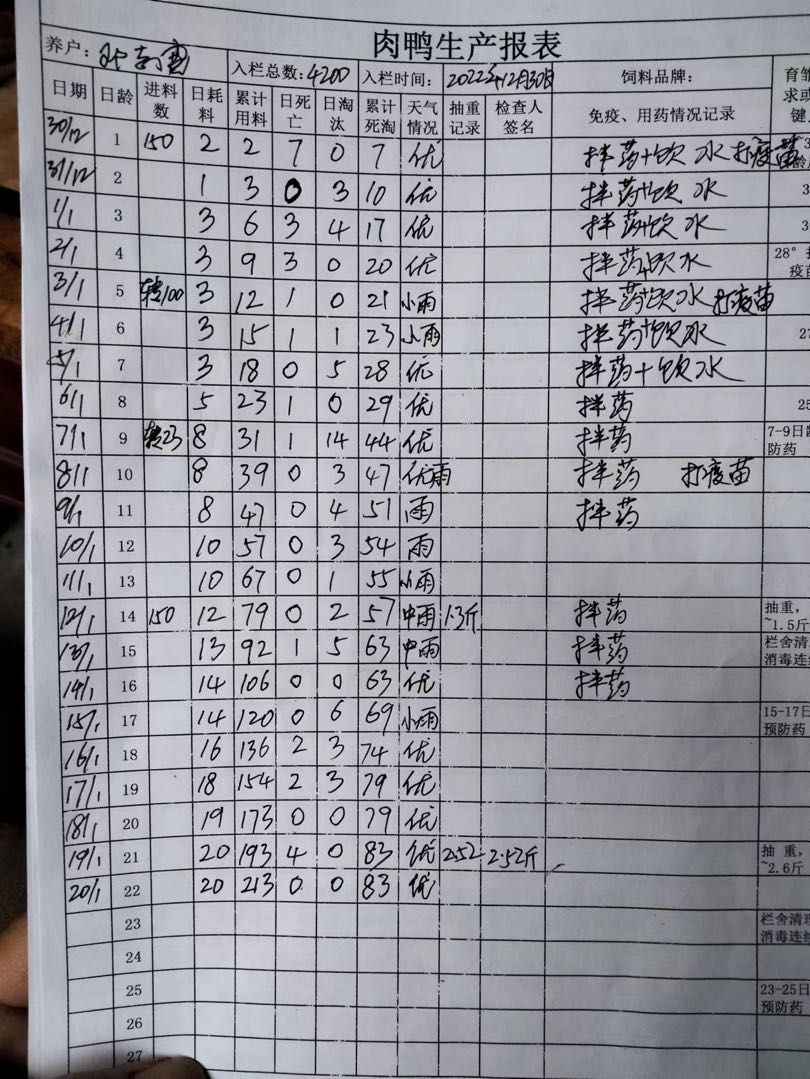 肉鸭生产报表
养户: 入栏总数:4200 入栏时间: 2022年12月30日 饲料品牌: 育雏
日期 日龄 进料数 日耗料 累计用料 日死亡 日淘汰 累计死淘 天气情况 抽重记录 检查人签名 免疫、用药情况记录 求或 键
30/12 1 150 2 2 7 0 7 优 拌药+饮水 打疫苗
31/12 2 1 3 0 3 10 优 拌药+饮水 3
1/1 3 3 6 3 4 17 优 拌药+饮水 3
2/1 4 3 9 3 0 20 优 拌药+饮水 28° 疫苗
3/1 5 转100 3 12 1 0 21 小雨 拌药+饮水 打疫苗
4/1 6 3 15 1 1 23 小雨 拌药+饮水 27
5/1 7 3 18 0 5 28 优 拌药+饮水
6/1 8 5 23 1 0 29 优 拌药 25
7/1 9 转23 8 31 1 14 44 优 拌药 7-9日龄 防药
8/1 10 8 39 0 3 47 优雨 拌药 打疫苗
9/1 11 8 47 0 4 51 雨 拌药
10/1 12 10 57 0 3 54 雨
11/1 13 10 67 0 1 55 小雨
12/1 14 150 12 79 0 2 57 中雨 1.3斤 拌药 抽重, ~1.5斤
13/1 15 13 92 1 5 63 中雨 拌药 栏舍清 消毒连续
14/1 16 14 106 0 0 63 优 拌药
15/1 17 14 120 0 6 69 小雨 15-17日 预防药
16/1 18 16 136 2 3 74 优
17/1 19 18 154 2 3 79 优
18/1 20 19 173 0 0 79 优
19/1 21 20 193 4 0 83 优 2.52 2.52斤 抽重, ~2.6斤
20/1 22 20 213 0 0 83 优
23 栏舍清理 消毒连续
24
25 23-25日 预防药
26
27